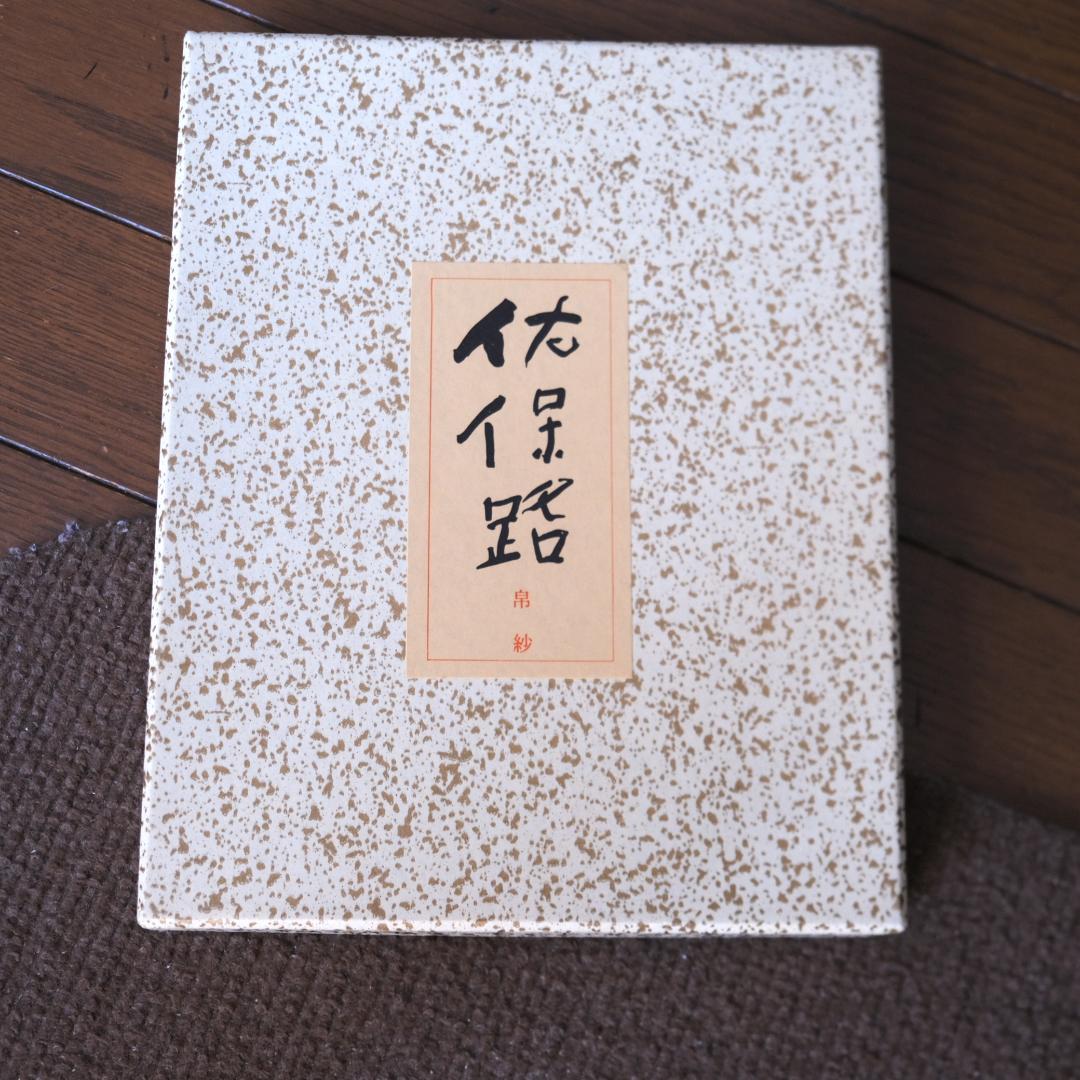 佐保路
帛紗